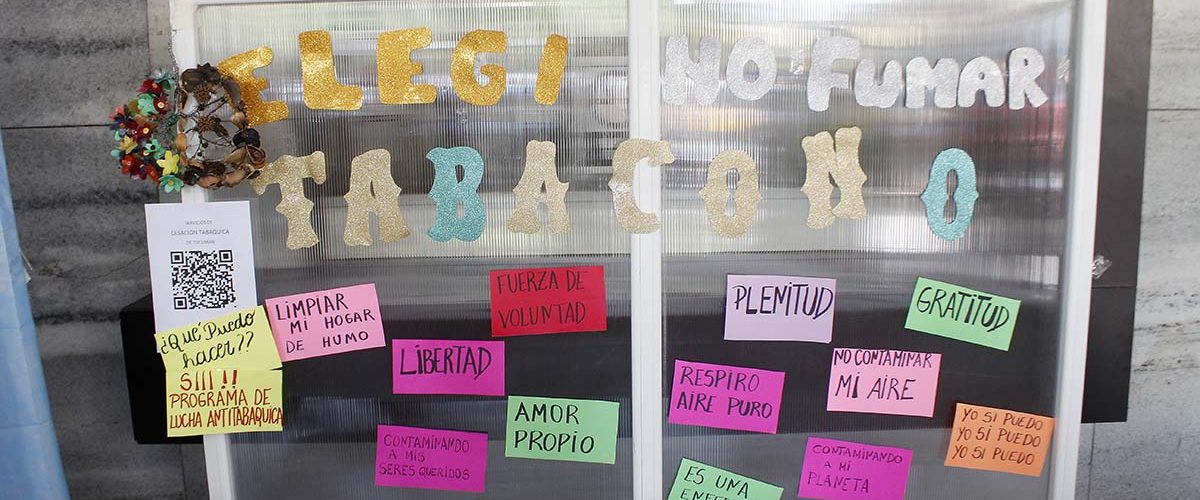 ELEGI NO FUMAR
TABACO NO
SERVICIOS DE
CESACION TABAQUICA
DE TUCUMAN
¿QUÉ PUEDO
hacer??
SIII !!
PROGRAMA DE
LUCHA ANTITABAQUICA
LIMPIAR
MI HOGAR
DE HUMO
FUERZA DE
VOLUNTAD
LIBERTAD
AMOR
PROPIO
CONTAMINANDO
A MIS
SERES QUERIDOS
PLENITUD
GRATITUD
NO CONTAMINAR
MI AIRE
RESPIRO
AIRE PURO
YO SI PUEDO
YO SI PUEDO
YO SI PUEDO
CONTAMINANDO
A MI
PLANETA
ES UNA